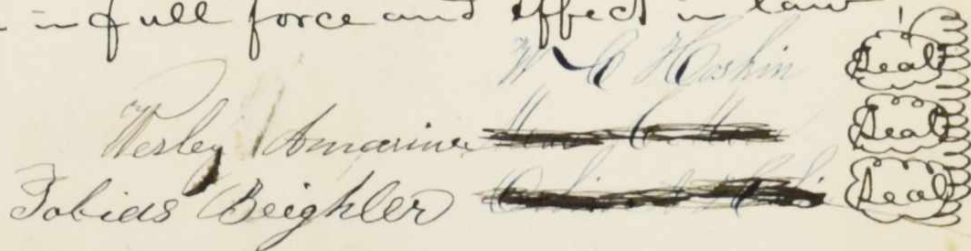 in full force and effect in law
W C Haskin Seal
Wesley Amarine Seal
Tobias Beighler Seal